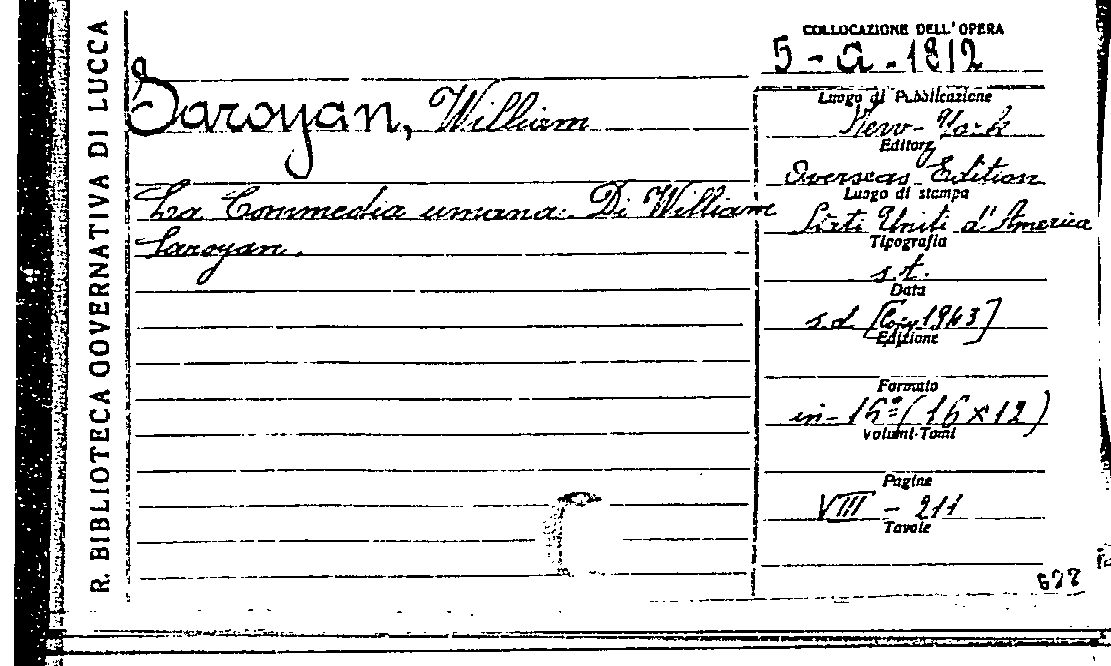 R. BIBLIOTECA GOVERNATIVA DI LUCCA
COLLOCAZIONE DELL'OPERA
5-a-1812
Saroyan, William
La Commedia umana. Di William
Saroyan.
Luogo di Pubblicazione
New-York
Editore
Overseas Edition
Luogo di stampa
Stati Uniti d'America
Tipografia
s.t.
Data
s.d. [Copy 1943]
Edizione
Formato
in-16º (16x12)
Volumi-Tomi
Pagine
VIII - 211
Tavole